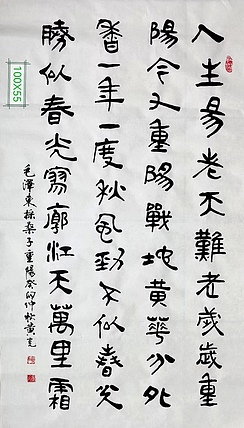 人生易老天難老歲歲重
陽今又重陽戰地黃華分外
香一年一度秋風勁不似春光
勝似春光寥廓江天萬里霜
毛澤東採桑子重陽癸卯仲秋黃
100X55